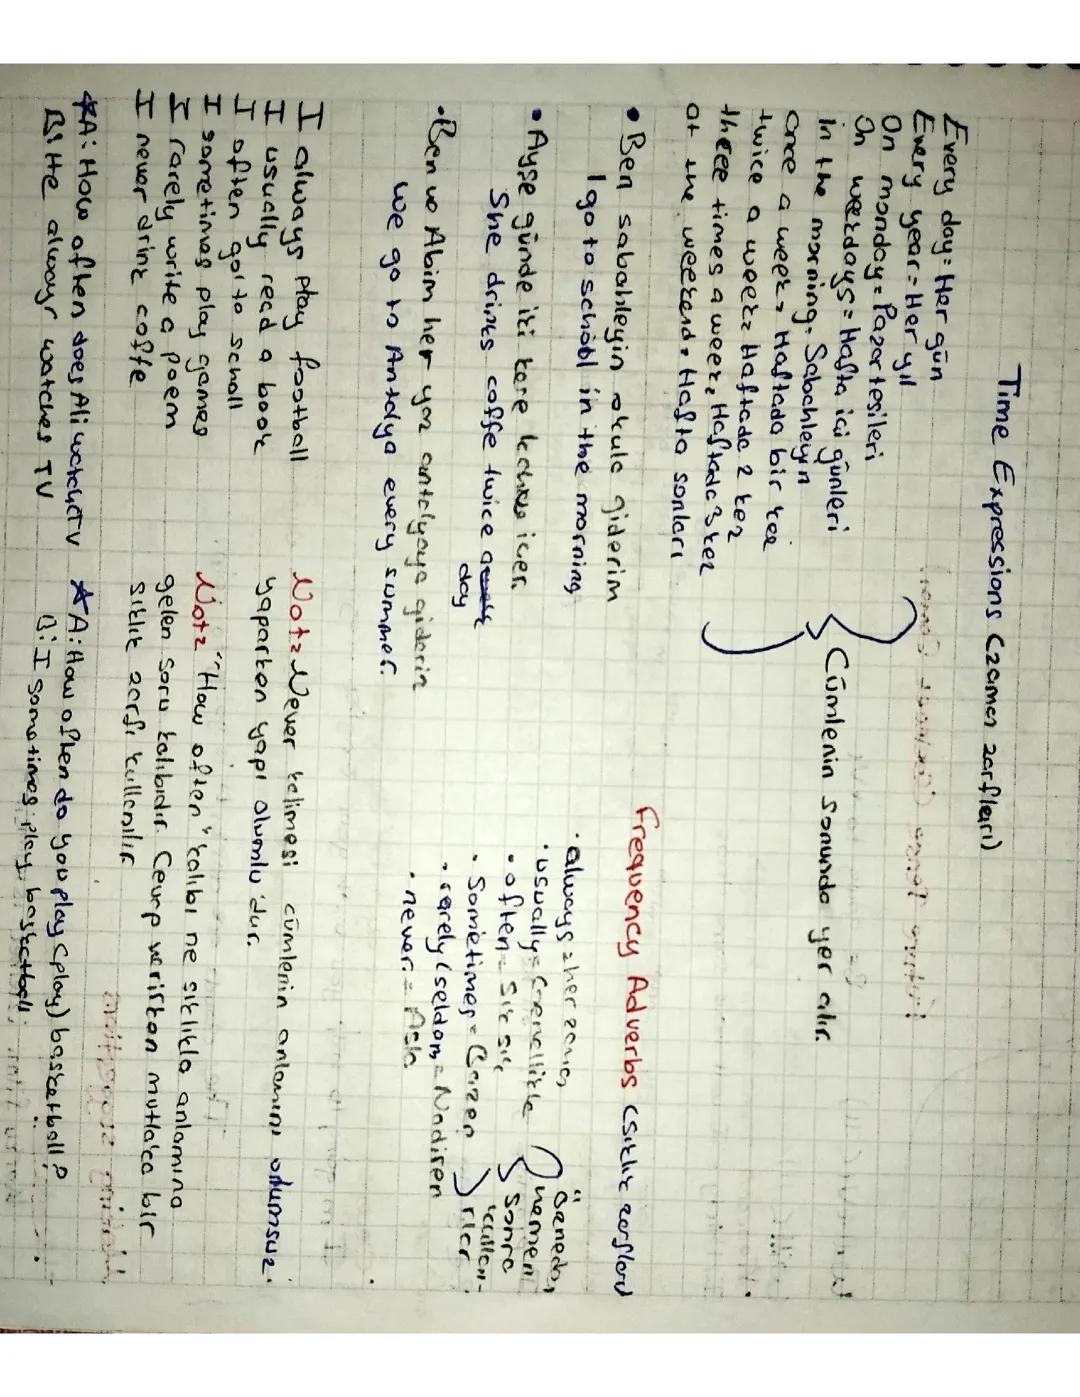 Time Expressions (zaman zarfları)
Every day = Her gün
Every year = Her yıl
On monday = Pazartesileri
On weekdays = Hafta içi günleri
In the morning = Sabahleyin
once a week = Haftada bir kez
twice a week = Haftada 2 kez
three times a week = Haftada 3 kez
at the weekend = Hafta sonları
Cümlenin sonunda yer alır.
• Ben sabahleyin okula giderim
I go to school in the morning
• Ayşe günde iki kere kahve içer.
She drinks coffe twice a day
• Ben ve Abim her yaz antalyaya giderin
we go to Antalya every summer.
Frequency Adverbs (sıklık zarfları)
• always = her zaman
• usually = Genellikle
• often = Sık sık
• Sometimes = Bazen
• rarely (seldom) = Nadiren
• never = Asla
Özneden
hemen
sonra
kullanı-
rlar
I always play football
I usually read a book
I often go to scholl
I sometimes play games
I rarely write a poem
I never drink coffe
Not = Never kelimesi cümlenin anlamını olumsuz
yaparken yapı olumlu'dur.
Not = "How often" kalıbı ne sıklıkla anlamına
gelen soru kalıbıdır. Cevap verirken mutlaka bir
sıklık zarfı kullanılır
A: How often does Ali watch TV
B: He always watches TV
A: How often do you play (play) basketball?
B: I sometimes play basketball.